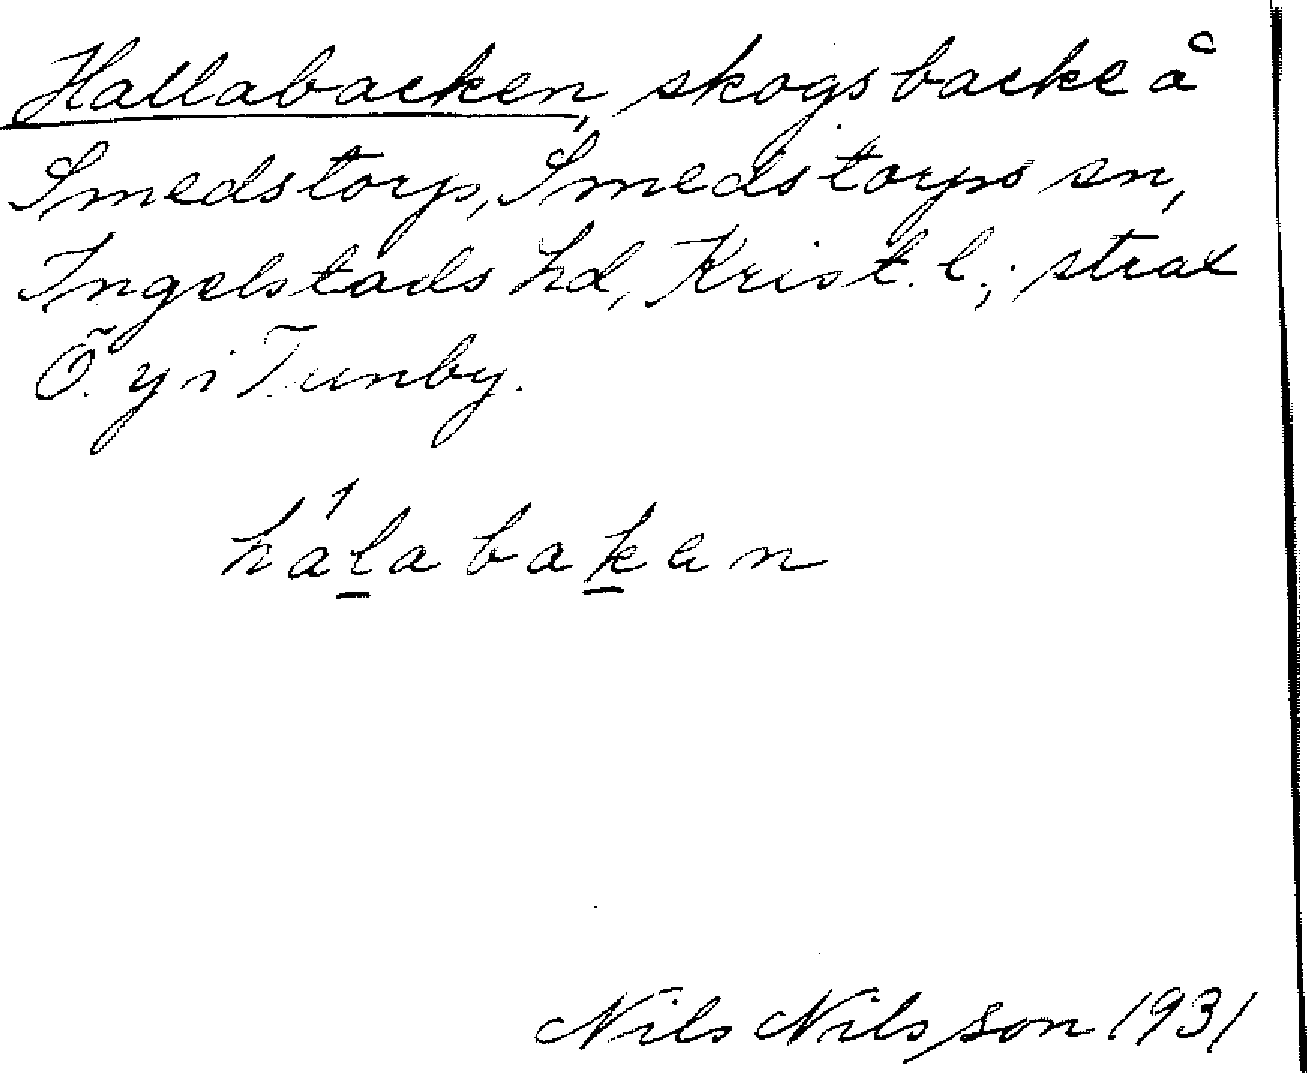 Hallabacken, skogsbacke å
Smedstorp, Smedstorps sn,
Ingelstads hd, Krist. l.; strax
Ö. y i Tunby.
hálabaken
Nils Nilsson 1931